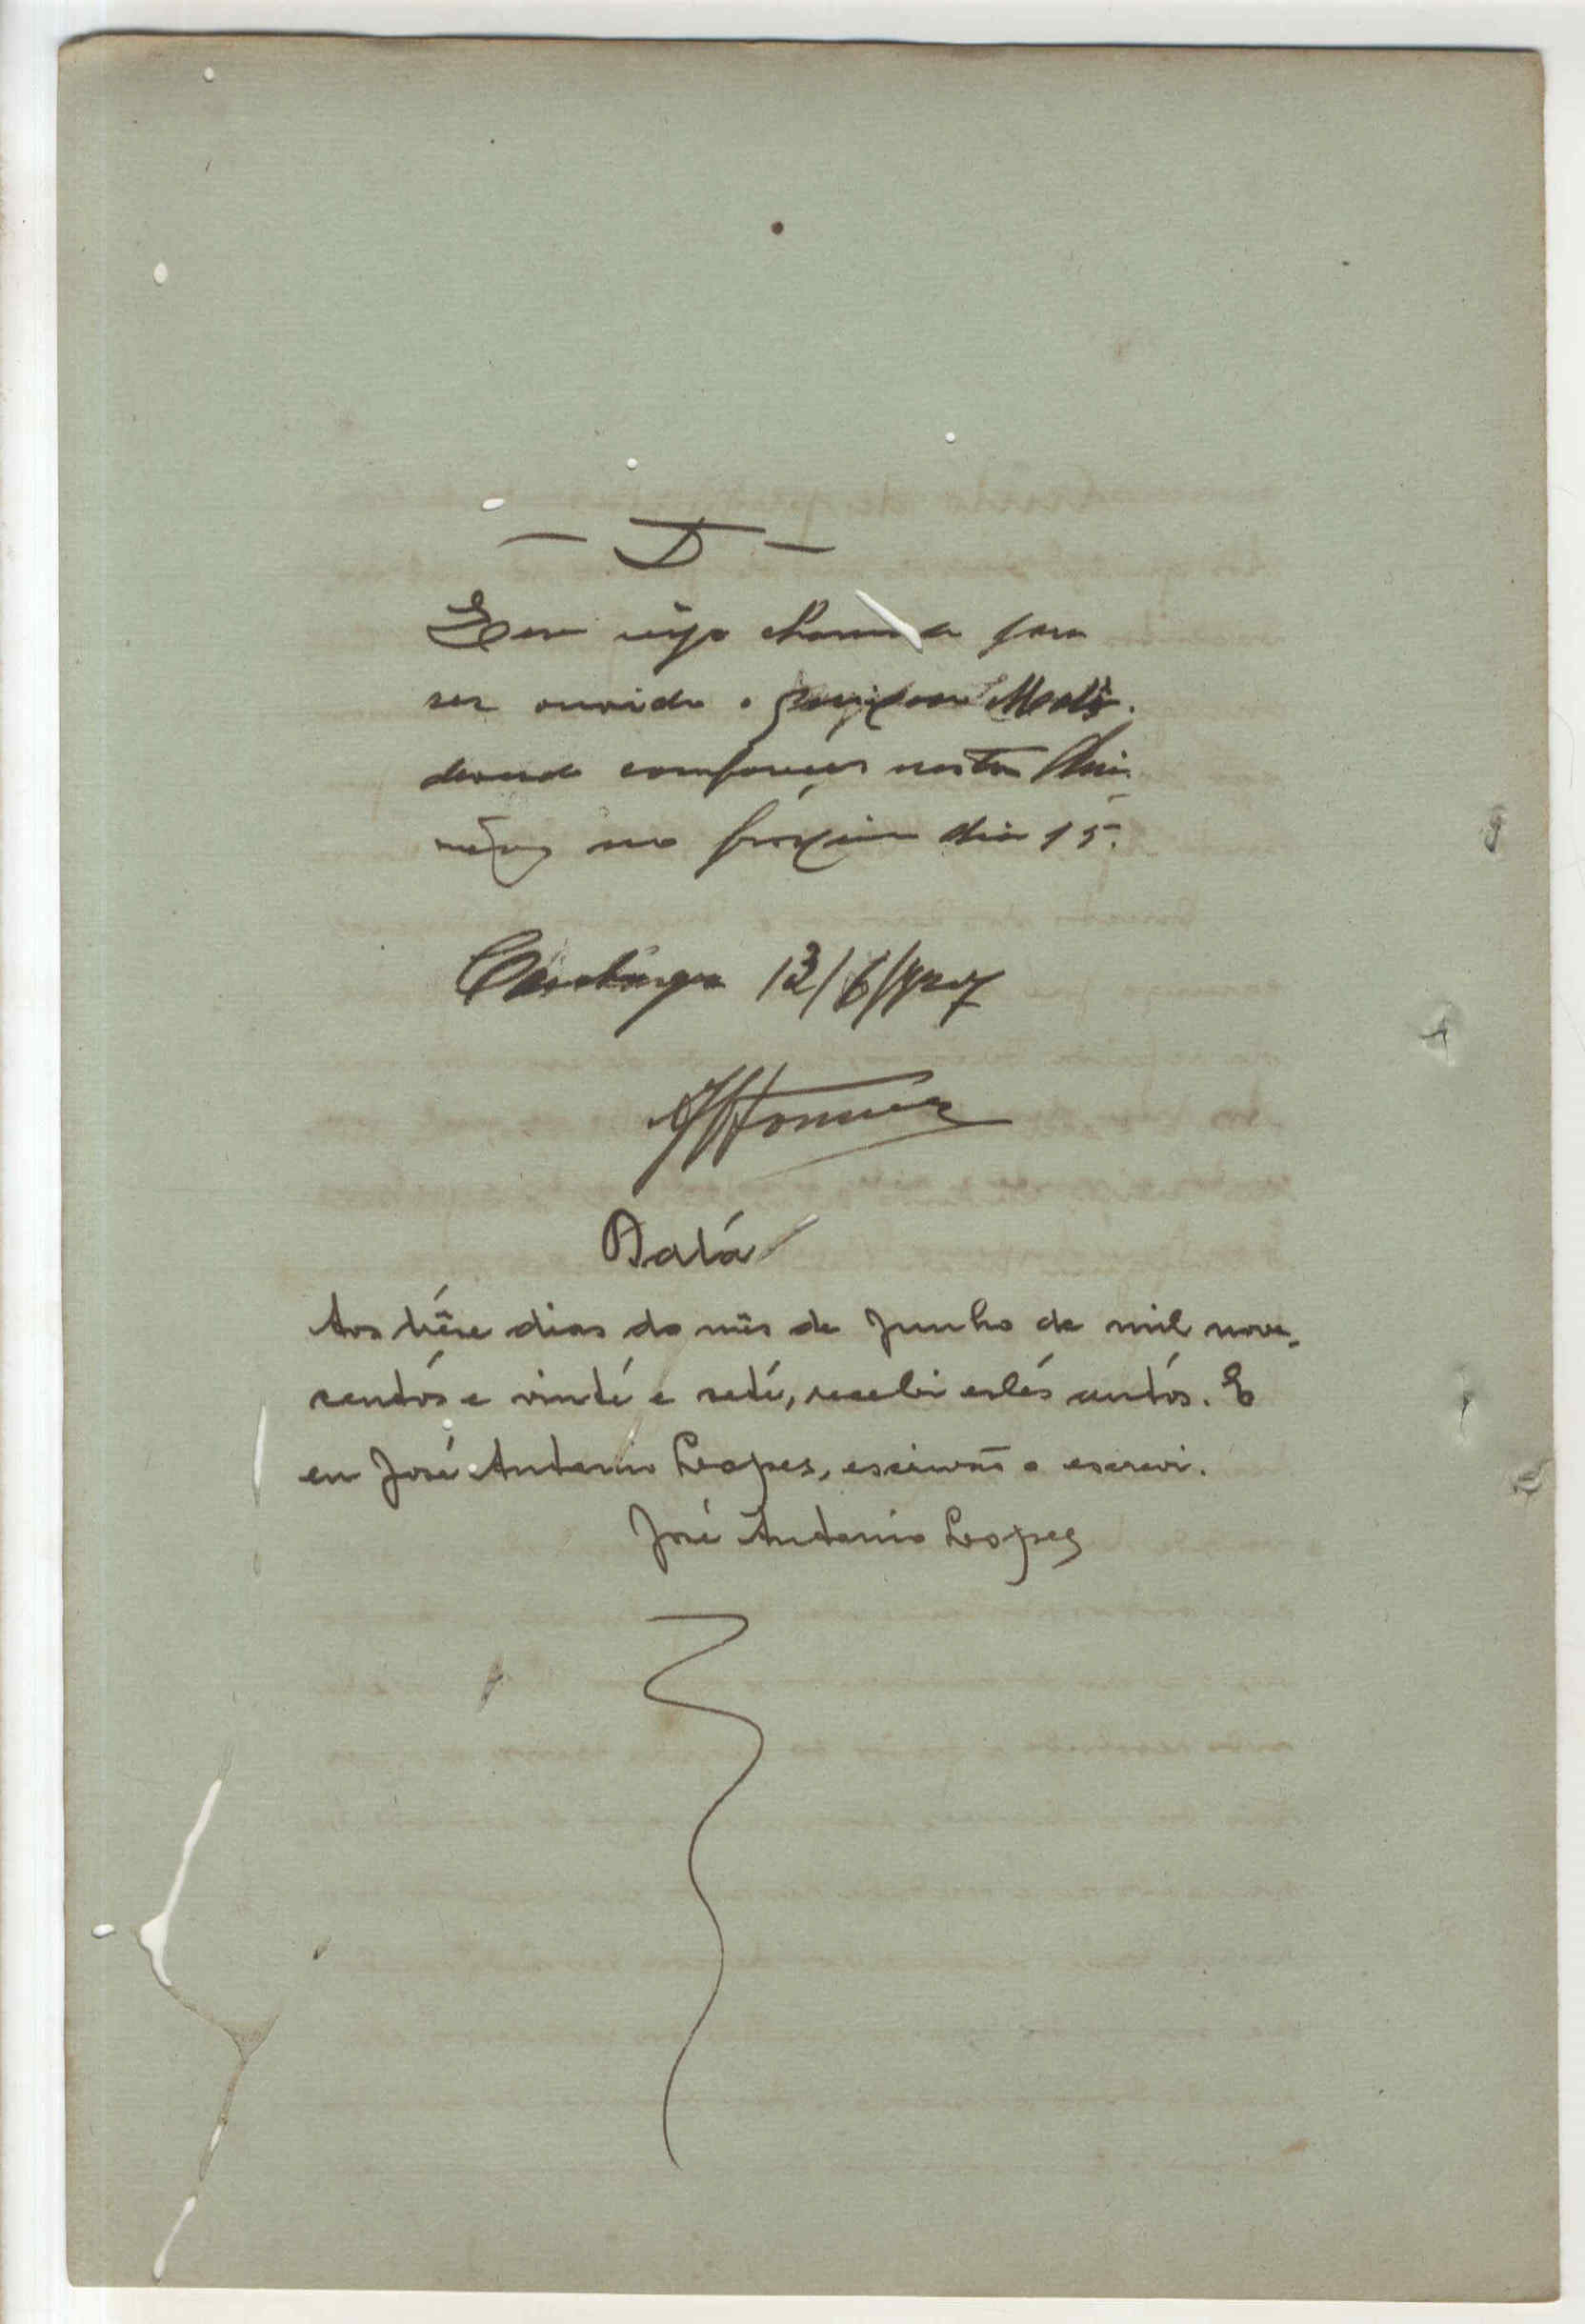 — D —
seja chamado para
ser ouvido o
devendo comparecer nesta
no proximo dia 15.
13/6/927
Datá
Aos trêse dias do mês de Junho de mil nove-
sentós e vinté e seté, recebi estés autós. E
eu José Antonio Lopes, escrivão o escrevi.
José Antonio Lopes